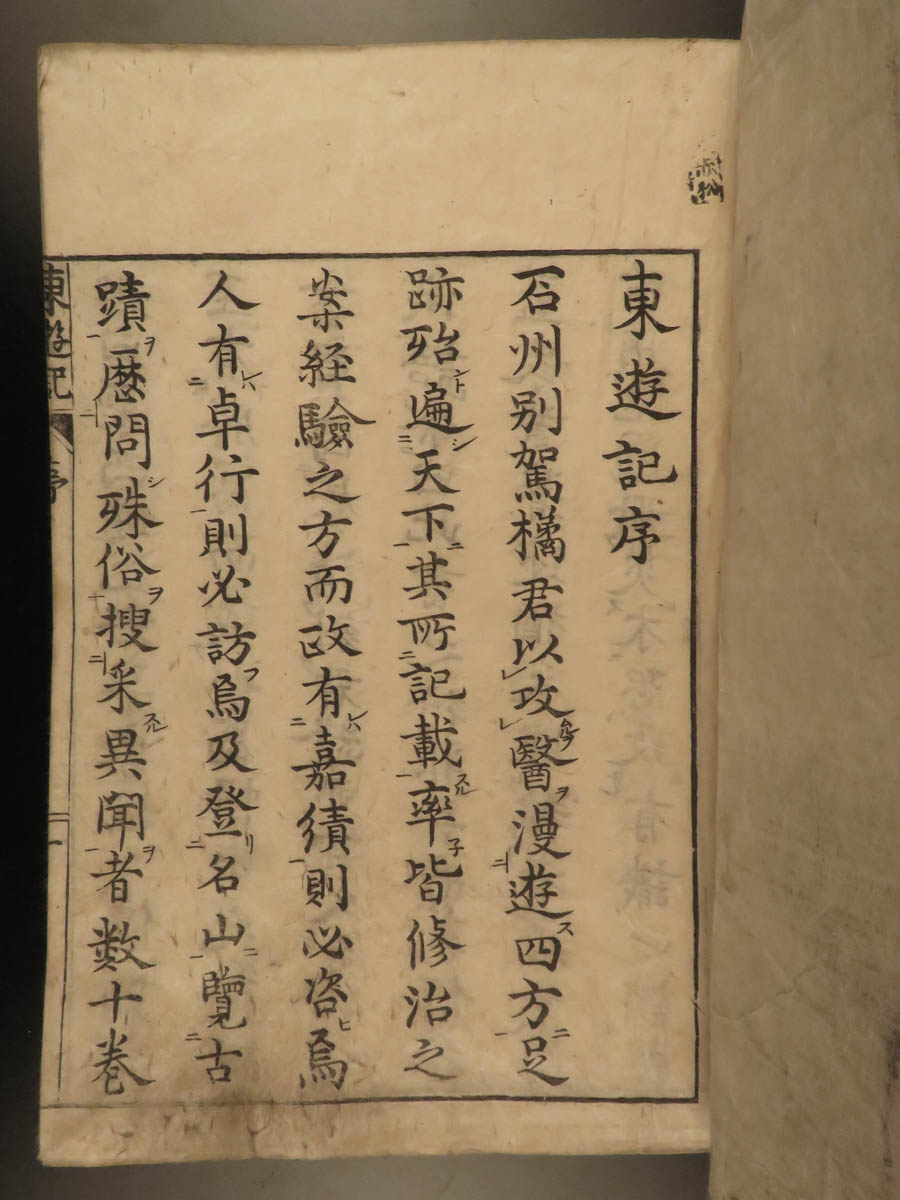 東遊記序
石州別駕橘君以攻醫漫遊四方足
跡殆遍天下其所記載率皆修治之
案経驗之方而政有嘉績則必咨焉
人有卓行則必訪焉及登名山覽古
蹟歴問殊俗搜采異聞者数十巻
東遊記
序
一